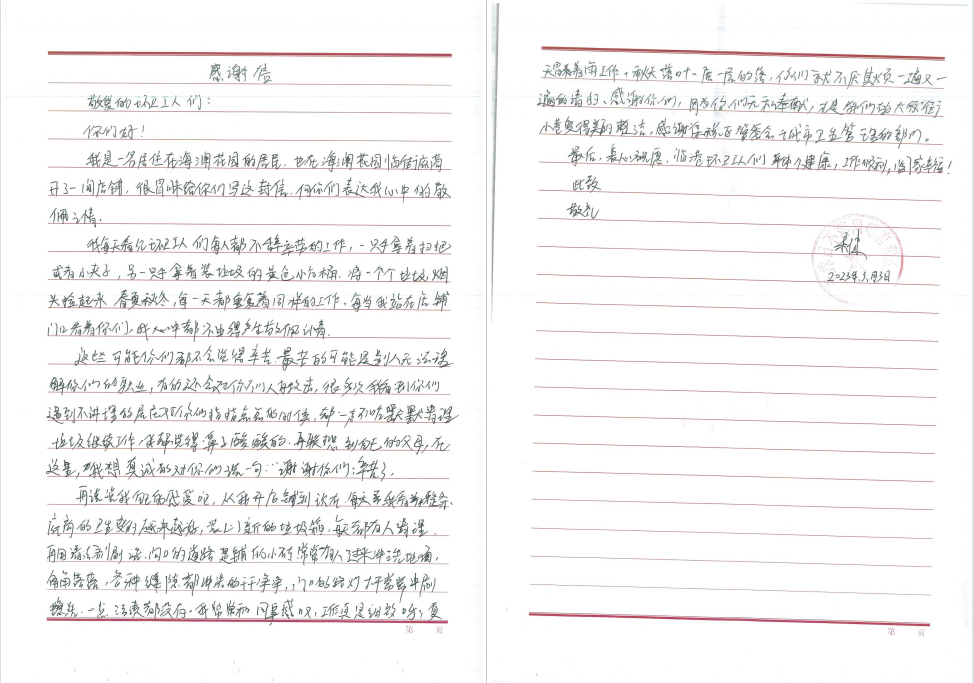 感谢信
敬爱的环卫工人们：
你们好！
我是一名居住在海湖花园的居民，也在海湖花园临街底商
开了一间店铺，很冒昧给你们写这封信，向你们表达我心中的敬
佩之情。
我每天看见环卫工人们每人都不辞辛劳的工作，一只手拿着扫把
或者小夹子，另一只手拿着装垃圾的黄色小桶，将一个个垃圾、烟
头捡起来，春夏秋冬，每一天都重复着同样的工作，每当我站在店铺
门口看着你们，我心中都不由得产生敬佩之情。
这些可能你们都不会觉得辛苦，最苦的可能是别人无法理
解你们的职业，有的还会对你们人身攻击，很多次我看到你们
遇到不讲理的居民对你们指指点点的时候，都一声不吭默默清理
垃圾继续工作，我都觉得鼻子酸酸的，再联想到自己的父母，在
这里，我想真诚的对你们说一句：谢谢你们，辛苦了。
再谈谈我自己的感受吧，从我开店铺到现在，每天
底商的卫生变的越来越好，装上了新的垃圾箱，每天都有人清理，
再用清洁剂刷洗，门口的道路 铺的小砖常常有人过来冲洗地面，
角角落落，各种缝隙都冲洗的干干净净，门口的路灯杆常常冲刷
擦洗，一点污渍都没有，我常常和同事感叹，工作真是细致呀，夏
天冒着着雨工作，秋天落叶一层一层的落，你们就不厌其烦一遍又一
遍的清扫，感谢你们，因为你们无私奉献，才是我们的大街
小巷变得美的整洁，感谢 管委会 城市卫生管理的部门。
最后，衷心祝愿，临港环卫工人们 身体健康，工作顺利，阖家幸福！
此致
敬礼
2023年3月3日
第 页
第 页